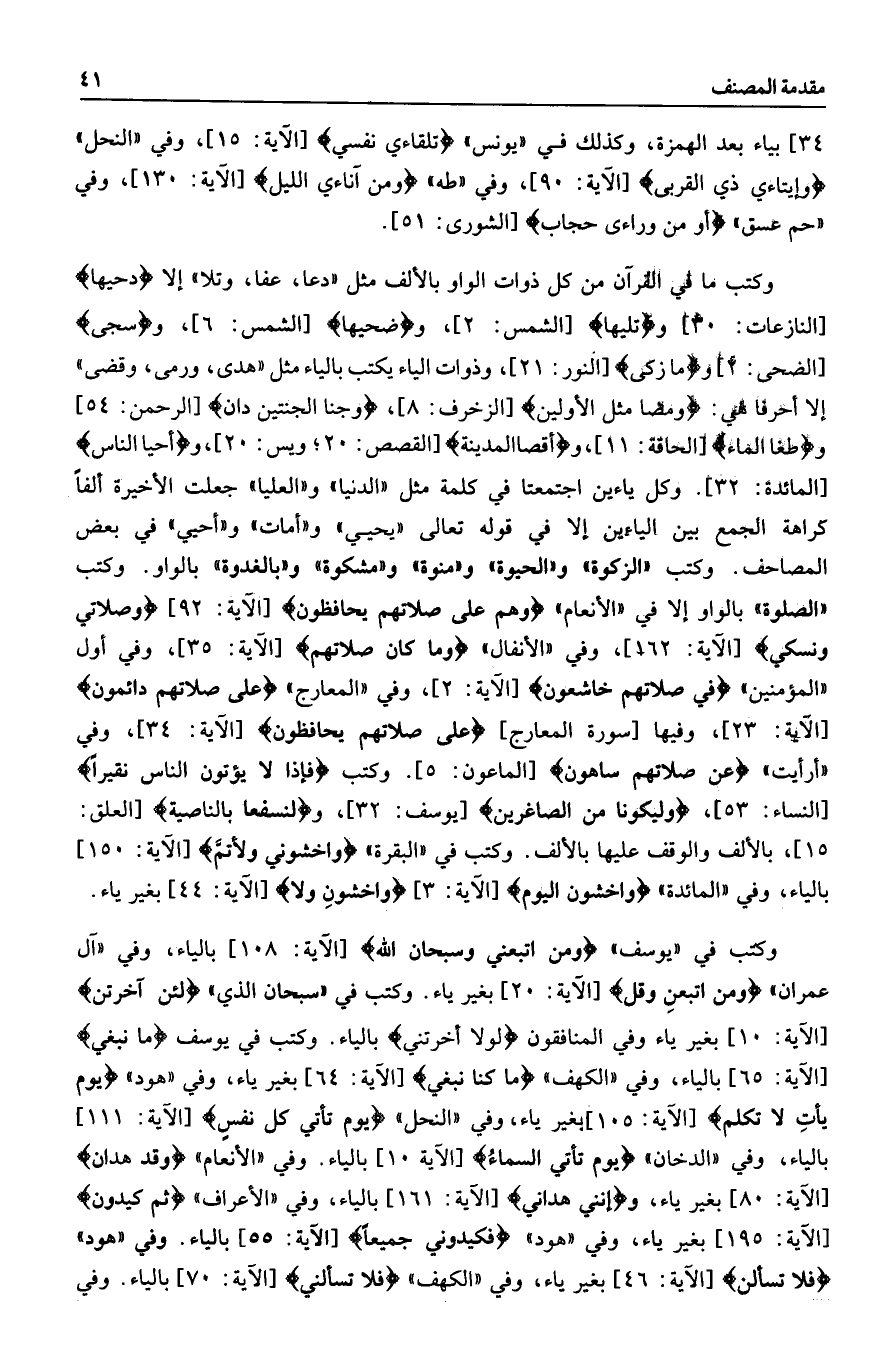 مقدمة المصنف ٤١
٣٤] بياء بعد الهمزة، وكذلك في «يونس» ﴿تلقاءي نفسي﴾ [الآية: ١٥]، وفي «النحل»
﴿وإيتاءي ذي القربى﴾ [الآية: ٩٠]، وفي «طه» ﴿ومن آناءي الليل﴾ [الآية: ١٣٠]، وفي
«حم عسق» ﴿أو من وراءى حجاب﴾ [الشورى: ٥١].
وكتب ما في القرآن من كل ذوات الواو بالألف مثل «دعا، عفا، وتلا» إلا ﴿دحيها﴾
[النازعات: ٣٠] و﴿تليها﴾ [الشمس: ٢]، و﴿ضحيها﴾ [الشمس: ٦]، و﴿سجى﴾
[الضحى: ٢] و﴿ما زكى﴾ [النور: ٢١]، وذوات الياء يكتب بالياء مثل «هدى، ورمى، وقضى»
إلا أحرفا هي: ﴿ومضا مثل الأولين﴾ [الزخرف: ٨]، ﴿وجنا الجنتين دان﴾ [الرحمن: ٥٤]
و﴿طغا الماء﴾ [الحاقة: ١١]، و﴿أقصاالمدينة﴾ [القصص: ٢٠؛ ويس: ٢٠]، و﴿أحيا الناس﴾
[المائدة: ٣٢]. وكل ياءين اجتمعتا في كلمة مثل «الدنيا» و«العليا» جعلت الأخيرة ألفاً
كراهة الجمع بين الياءين إلا في قوله تعالى «يحيـي» و«أمات» و«أحيي» في بعض
المصاحف. وكتب «الزكوة» و«الحيوة» و«منوة» و«مشكوة» و«بالغدوة» بالواو. وكتب
«الصلوة» بالواو إلا في «الأنعام» ﴿وهم على صلاتهم يحافظون﴾ [الآية: ٩٢] ﴿وصلاتي
ونسكي﴾ [الآية: ١٦٢]، وفي «الأنفال» ﴿وما كان صلاتهم﴾ [الآية: ٣٥]، وفي أول
«المؤمنين» ﴿في صلاتهم خاشعون﴾ [الآية: ٢]، وفي «المعارج» ﴿على صلاتهم دائمون﴾
[الآية: ٢٣]، وفيها [سورة المعارج] ﴿على صلاتهم يحافظون﴾ [الآية: ٣٤]، وفي
«أرأيت» ﴿عن صلاتهم ساهون﴾ [الماعون: ٥]. وكتب ﴿فإذا لا يؤتون الناس نقيراً﴾
[النساء: ٥٣]، ﴿وليكونا من الصاغرين﴾ [يوسف: ٣٢]، و﴿لنسفعا بالناصية﴾ [العلق:
١٥]، بالألف والوقف عليها بالألف. وكتب في «البقرة» ﴿واخشوني ولأتمَّ﴾ [الآية: ١٥٠]
بالياء، وفي «المائدة» ﴿واخشون اليوم﴾ [الآية: ٣] ﴿واخشونِ ولا﴾ [الآية: ٤٤] بغير ياء.
وكتب في «يوسف» ﴿ومن اتبعني وسبحان الله﴾ [الآية: ١٠٨] بالياء، وفي «آل
عمران» ﴿ومن اتبعنِ وقل﴾ [الآية: ٢٠] بغير ياء. وكتب في «سبحان الذي» ﴿لئن آخرتن﴾
[الآية: ١٠] بغير ياء وفي المنافقون ﴿لولا أخرتني﴾ بالياء. وكتب في يوسف ﴿ما نبغي﴾
[الآية: ٦٥] بالياء، وفي «الكهف» ﴿ما كنا نبغي﴾ [الآية: ٦٤] بغير ياء، وفي «هود» ﴿يوم
يأتِ لا تكلم﴾ [الآية: ١٠٥]بغير ياء، وفي «النحل» ﴿يوم تأتي كل نفسٍ﴾ [الآية: ١١١]
بالياء، وفي «الدخان» ﴿يوم تأتي السماءُ﴾ [الآية ١٠] بالياء. وفي «الأنعام» ﴿وقد هدان﴾
[الآية: ٨٠] بغير ياء، و﴿إنني هداني﴾ [الآية: ١٦١] بالياء، وفي «الأعراف» ﴿ثم كيدون﴾
[الآية: ١٩٥] بغير ياء، وفي «هود» ﴿فكيدوني جميعاً﴾ [الآية: ٥٥] بالياء. وفي «هود»
﴿فلا تسألن﴾ [الآية: ٤٦] بغير ياء، وفي «الكهف» ﴿فلا تسألني﴾ [الآية: ٧٠] بالياء. وفي